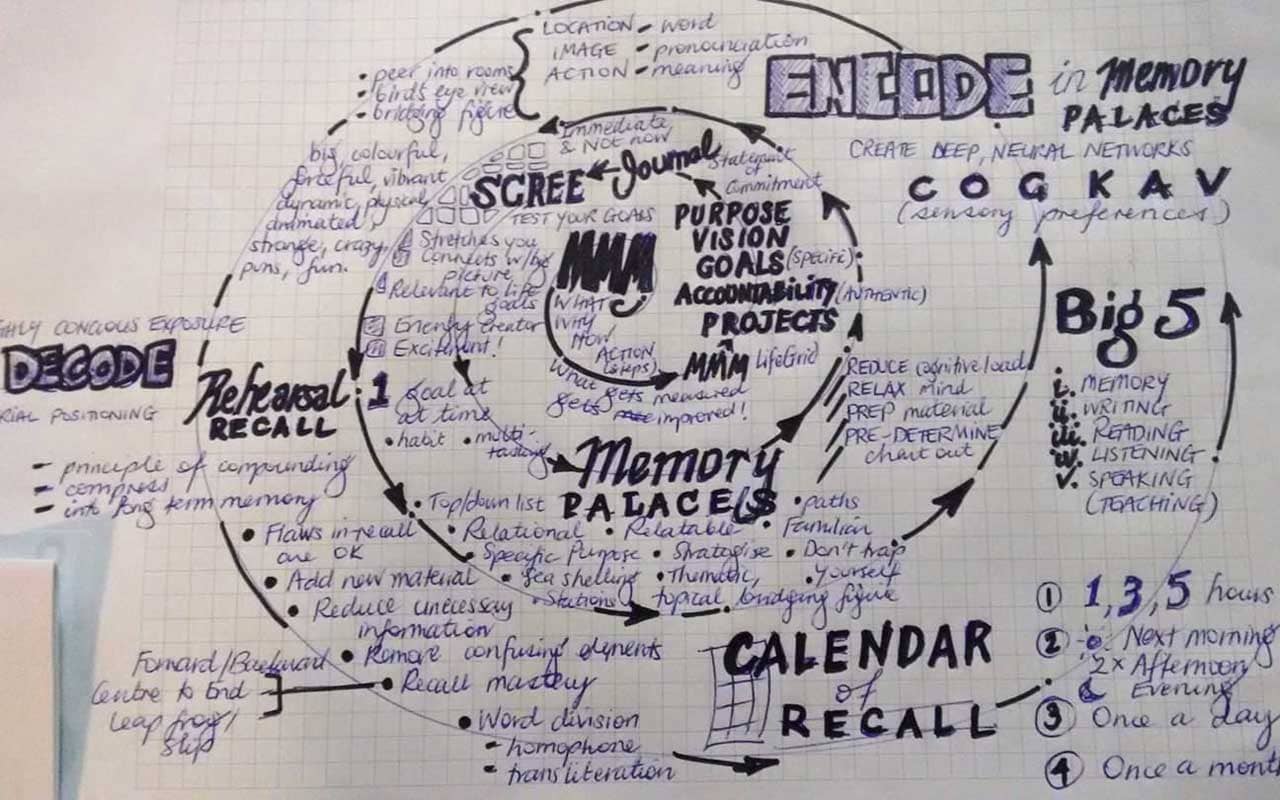 LOCATION - word
IMAGE - pronounciation
ACTION - meaning
• peer into rooms
• birds eye view
• bridging figure
ENCODE in Memory
PALACES
CREATE DEEP, NEURAL NETWORKS
C O G K A V
(sensory preferences)
big, colourful,
vibrant
dynamic, physical,
animated,
strange, crazy,
puns, fun.
Immediate
& Not now
Journal
SCREE
Statement
of
Commitment
TEST YOUR GOALS
Stretches you
Connects w/big
picture
Relevant to life
goals
Energy Creator
Excitment!
MMM
WHAT
WHY
HOW
ACTION
(steps)
What gets measured
gets improved!
PURPOSE
VISION
GOALS (SPECIFIC)
ACCOUNTABILITY (AUTHENTIC)
PROJECTS
MMM LifeGrid
1 Goal at
at time
• habit • multi-
tasking
Memory
PALACE(S
REDUCE cognitive load
RELAX mind
PREP material
PRE-DETERMINE
chart out
Big 5
i. MEMORY
ii. WRITING
iii. READING
iv. LISTENING
v. SPEAKING
(TEACHING)
HLY CONCIOUS EXPOSURE
DECODE
RIAL POSITIONING
Rehearsal
RECALL
- principle of compounding
- compress
- into long term memory
• Top/down list
• paths
• Relational • Relatable • Familiar
• Specific Purpose • Strategise • Don't trap
yourself
• Sea shelling • Thematic,
topical
• Stations
bridging figure
• Flaws in recall
are OK
• Add new material
• Reduce unecessay
information
• Remove confusing elements
• Recall mastery
Forward/Backward
Centre to End
Leap frog/
Skip
• Word division
- homophone
- transliteration
CALENDAR
of
RECALL
① 1,3,5 hours
② Next morning
2x Afternoon
Evening
③ Once a day
④ Once a mont